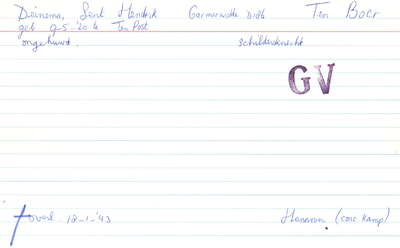 Deinema, Sent Hendrik Garmerwolde D186 Ten Boer
geb 9-5-'20 te Ten Post
ongehuwd. schildersknecht
GV
overl. 12-1-'43 Hannover (conc. kamp)